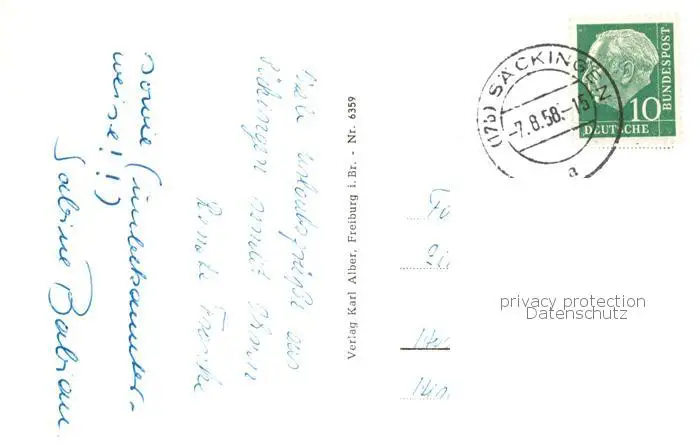 Viele Urlaubsgrüße aus
Säckingen sendet Ihnen
Renate
sowie (unbekannter-
weise!!)
Sabine Babian
Verlag Karl Alber, Freiburg i. Br. - Nr. 6359
(17b) SÄCKINGEN
-7.8.58.-15
a
10
DEUTSCHE
BUNDESPOST
privacy protection
Datenschutz